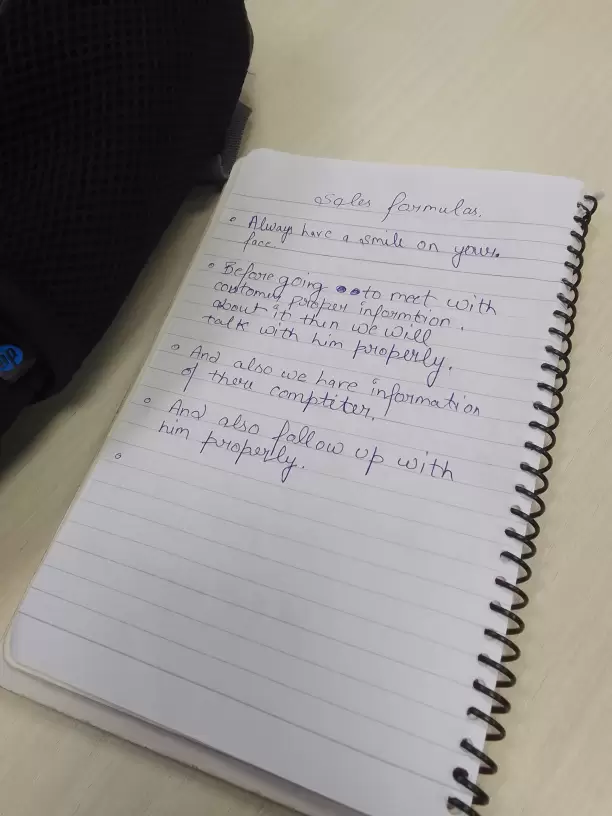 Sales formulas.
• Always have a smile on your.
face
• Before going to meet with
customer, proper informtion.
about it then we will
talk with him properly.
• And also we have information
of there comptiter.
• And also fallow up with
him properly.
•
hp